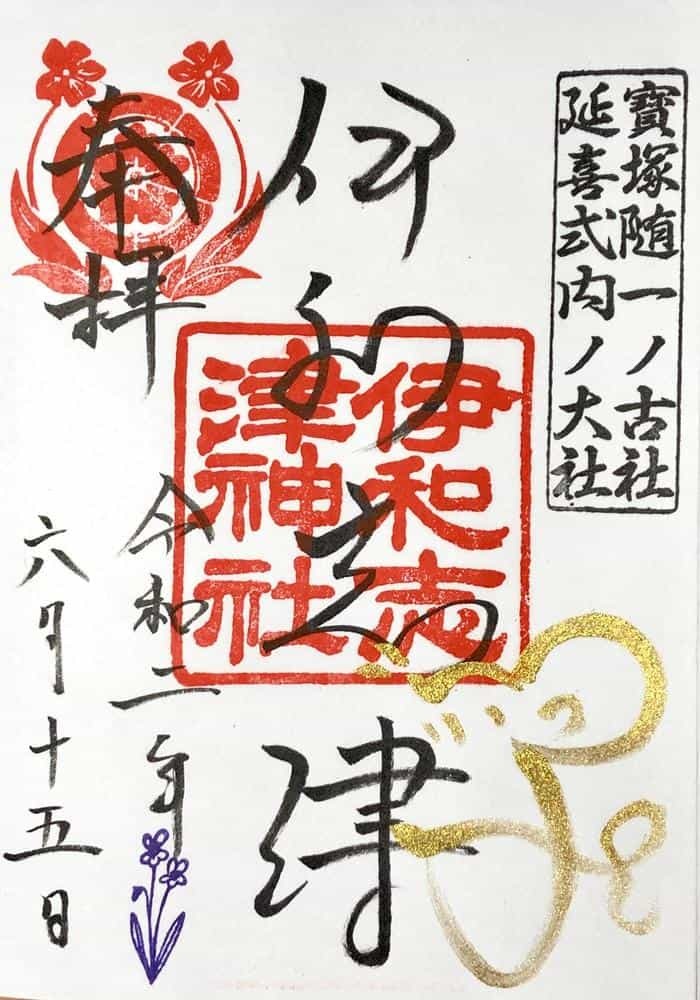 寶塚随一ノ古社
延喜式内ノ大社
伊和志津
伊和志
津神社
奉拝
令和二年
六月十五日